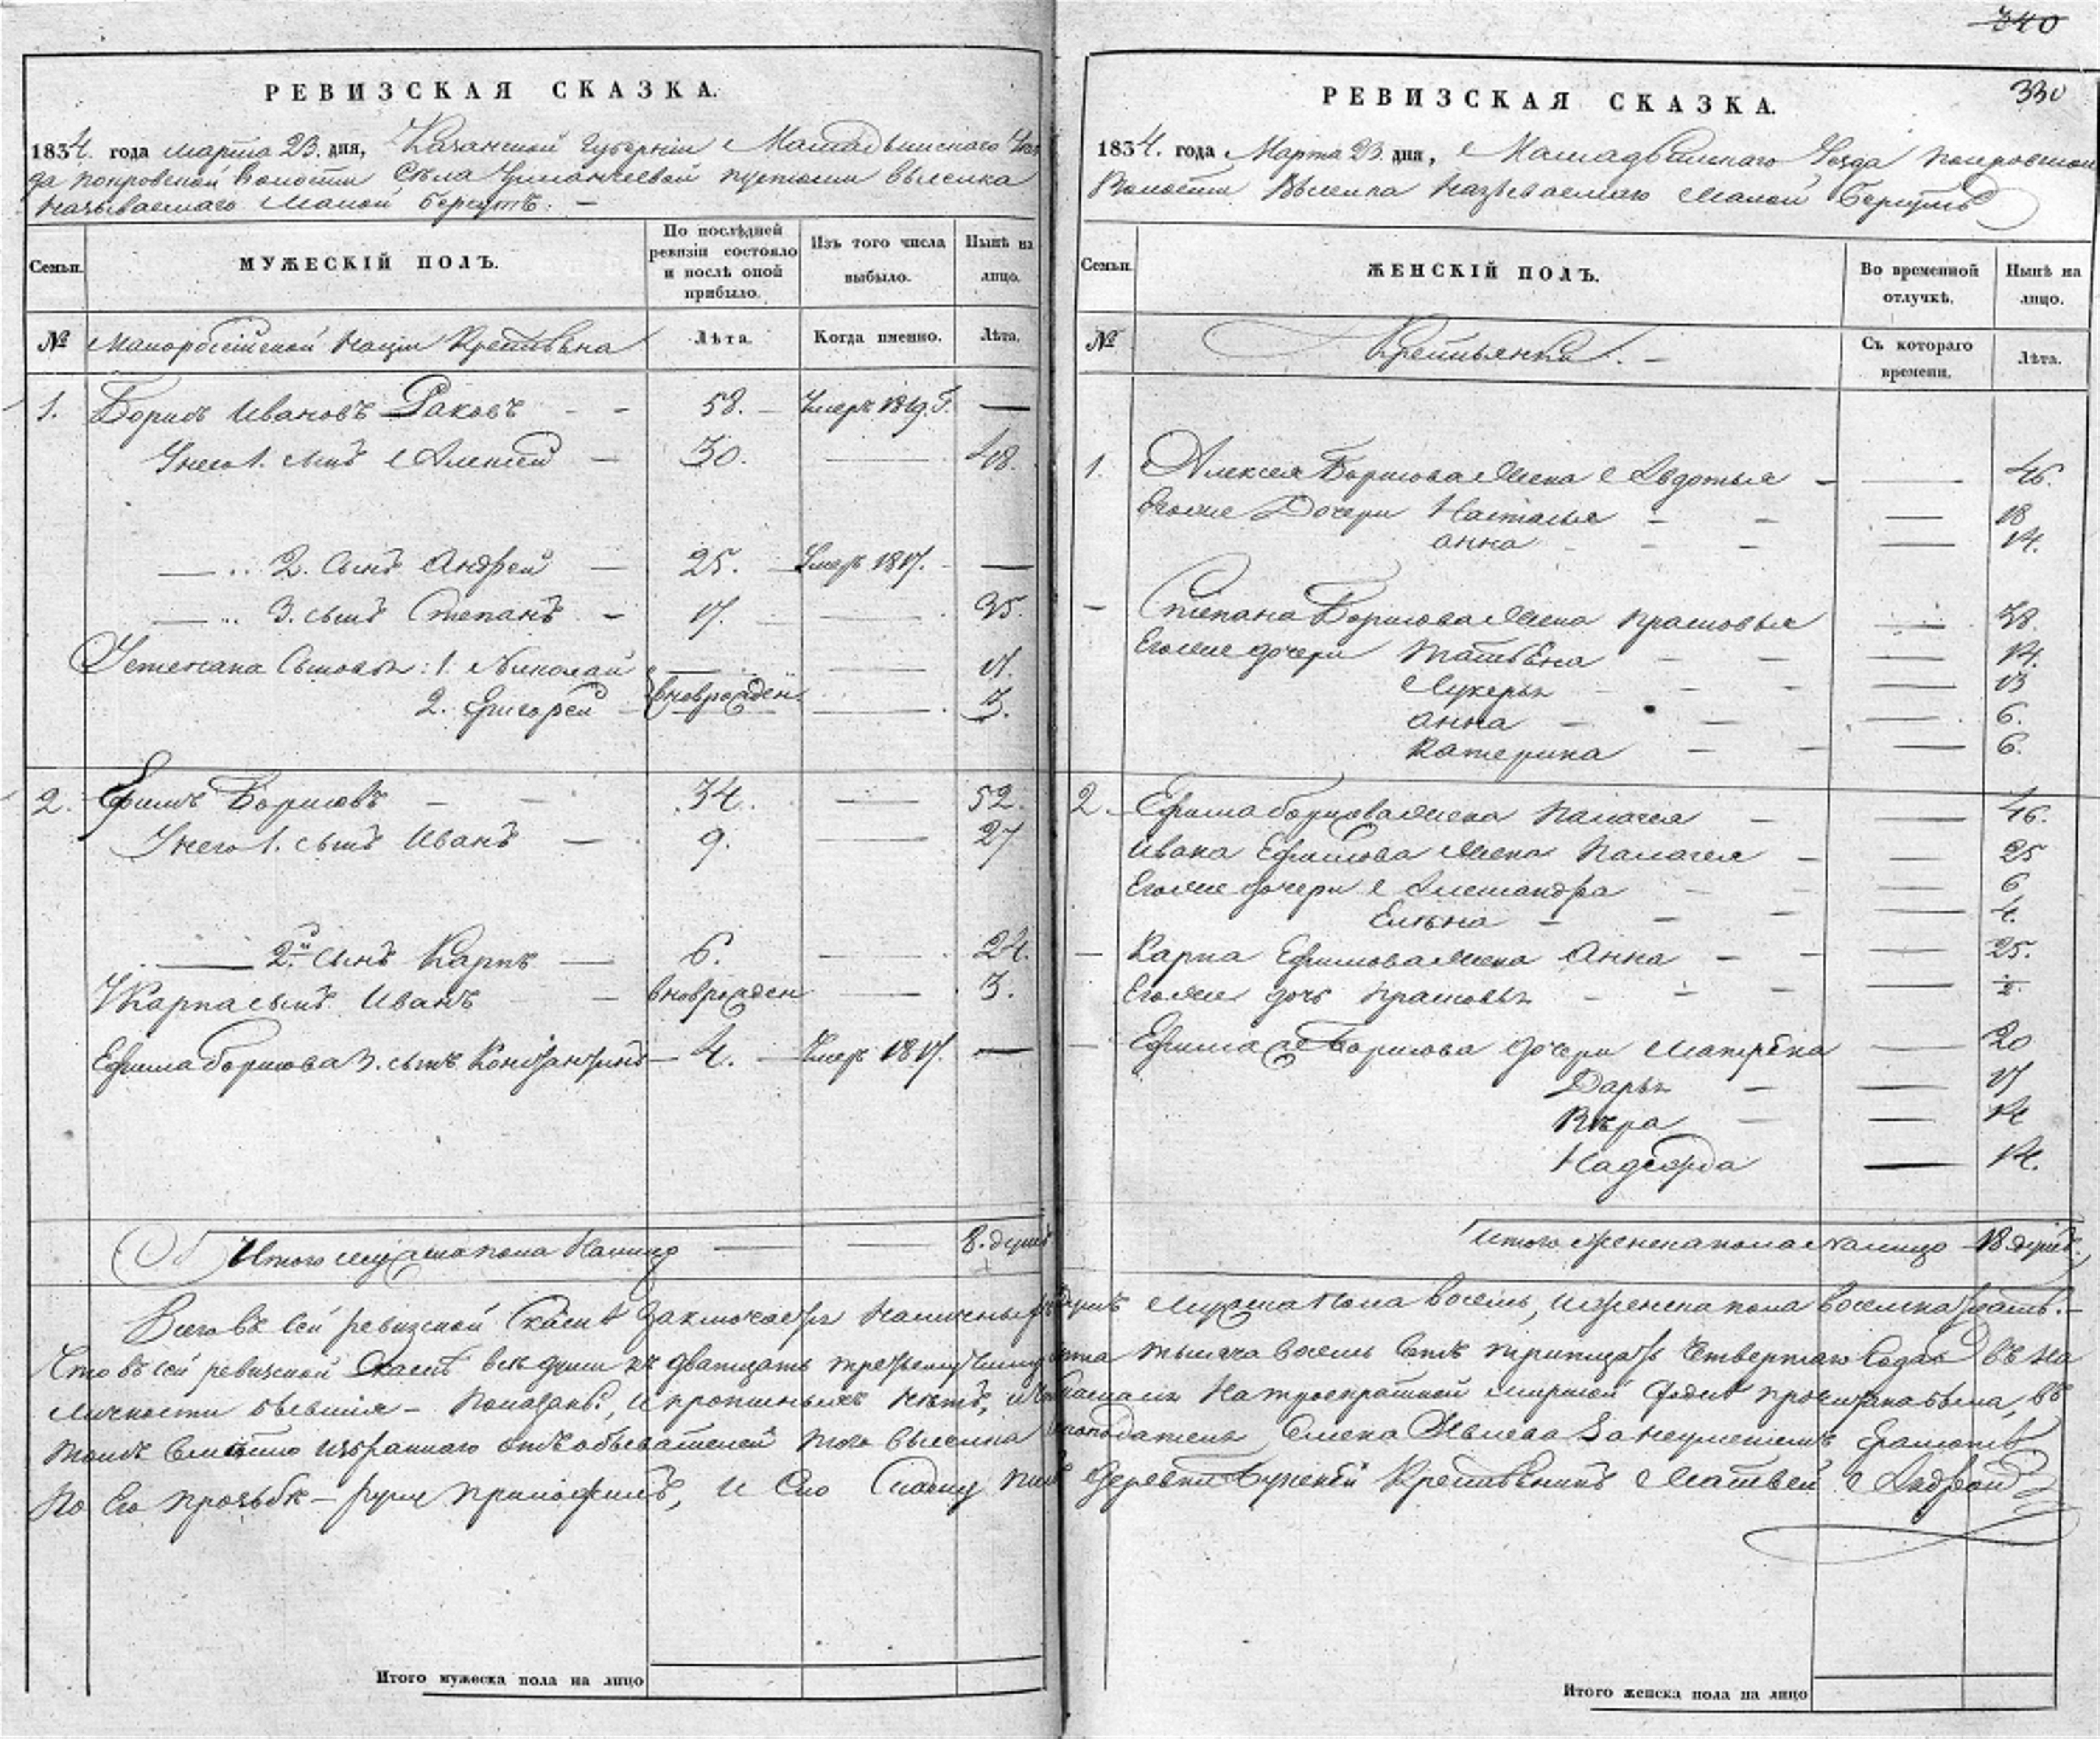 340
330
РЕВИЗСКАЯ СКАЗКА.
1834. года марта 23. дня, Казанской Губерніи Мамадышского Уез
да покровской волости Села Урманчеевой пустоши выселка
называемаго Малой Берсутъ. —
Семьи.
МУЖЕСКІЙ ПОЛЪ.
По послѣдней ревизіи состояло и послѣ оной прибыло.
Изъ того числа выбыло.
Нынѣ на лицо.
№
Малороссійской Націи Крестьяна
Лѣта.
Когда именно.
Лѣта.
1. Борисъ Ивановъ Раковъ — — 58. — Умеръ 1819. г. —
У него 1. сынъ Алексей — 30. — 48.
— .. 2. сынъ Андрей — 25. — Умеръ 1817. —
— .. 3. сынъ Степанъ — 17. — 35.
У Степана Сыновья: 1. Николай — 17.
2. Григорей вноврожден — 3.
2. Ефимъ Борисовъ — — 34. — 52.
У него 1. сынъ Иванъ — 9. — 27
— 2й сынъ Карпъ — 6. — 24.
У Карпа сынъ Иванъ — вноврожден — 3.
Ефима Борисова 3. сынъ Константинъ — 4. — Умеръ 1817. —
Итого мужеска пола налицо — — 8. душъ
РЕВИЗСКАЯ СКАЗКА.
1834. года Марта 23. дня, Мамадышскаго Уезда покровской
Волости Выселка называемаго Малой Берсутъ
Семьи.
ЖЕНСКІЙ ПОЛЪ.
Во временной отлучкѣ.
Нынѣ на лицо.
№
Крестьянки. —
Съ котораго времени.
Лѣта.
1. Алексея Борисова Жена Авдотья — — 46.
Его же Дочери Насталья — — — 18
анна — — — 14.
— Степана Борисова Жена Прасковья — 38.
Его же дочери Татьяна — — — 14.
Лукерья — — — 13
анна — — — 6.
Катерина — — — 6.
2. Ефима борисова жена Палагея — — 46.
Ивана Ефимова Жена Палагея — — 25
Его же дочери Александра — — 6
Елѣна — — — — 4.
— Карпа Ефимова жена Анна — — — 25.
Его же дочь Прасковья — — — —
— Ефима Борисова дочери Матрёна — 20
Дарья — — 17
Вѣра — — 14
Надежда — 14.
итого женска пола налицо 18 душъ.
Всего въ сей ревизской Сказкѣ заключается Наличныхъ душъ Мужеска пола восемь, и женска пола восемнатцать. —
Что въ сей ревизской Сказкѣ все души къ дватцать третьему числу марта тысяча восемь сотъ тритцать четвертаго Года въ на
личности бывшия — показаны, и прописныхъ нѣтъ, и что сказка сія на троекратной мирской сходкѣ прочитана была, въ
томъ вместо избраннаго отъ обывателей того выселка за неуменіемъ грамотѣ
по его прозьбѣ — руку приложилъ, и сію Сказку деревни Крестьянинъ Матвей
Итого мужеска пола на лицо
Итого женска пола на лицо